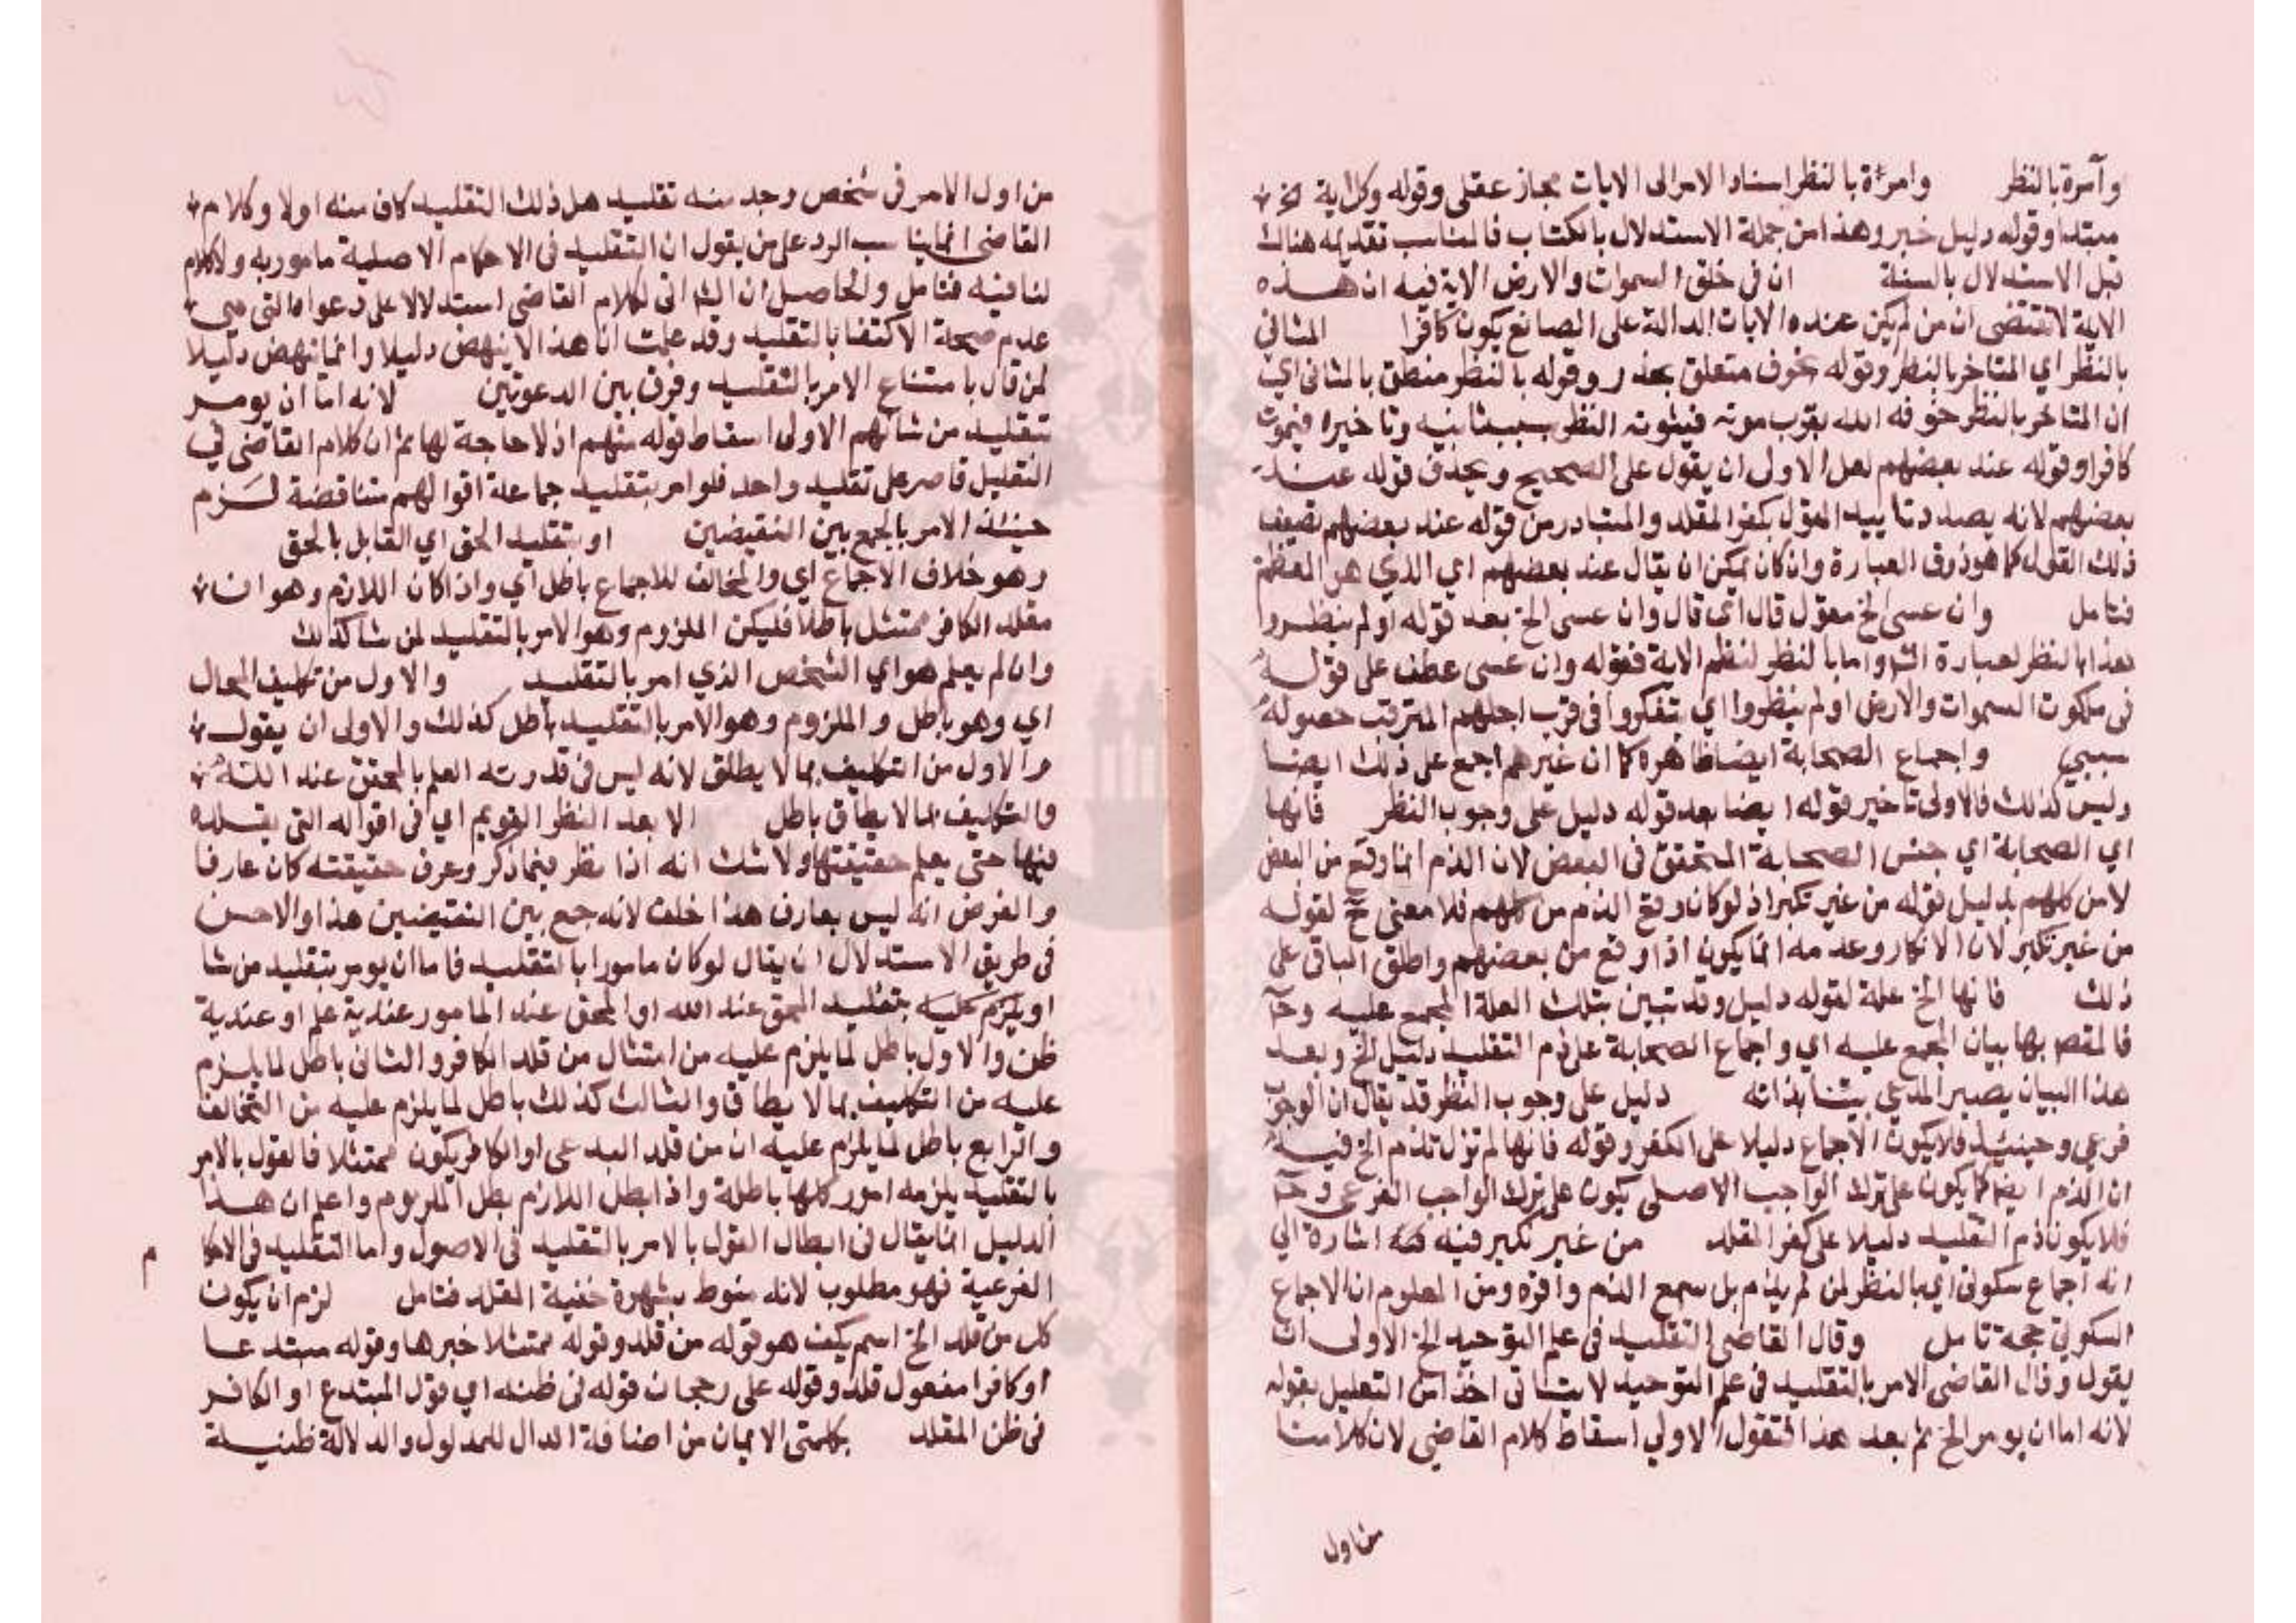 وآمرة بالنظر وامرأة بالنظر اسناد الامر الى الايات مجاز عقلى وقوله وكل اية الخ
مبتدا وقوله دليل خبر وهذا من جملة الاستدلال بالكتاب فالمناسب تقديمه هناك
قبل الاستدلال بالسنة ان فى خلق السموات والارض الاية فيه ان هذه
الاية لا تقتضى ان من لم يكن عنده الايات الدالة على الصانع يكون كافرا المتانى
بالنظر اي المتاخر بالنظر وقوله خوف متعلق بحذر وقوله بالنظر متعلق بالمتانى اي
ان المتاخر بالنظر خوفه الله بقرب موته فيفوته النظر بسبب تانيه وتاخيره فيموت
كافرا وقوله عند بعضهم لعل الاولى ان يقول على الصحيح ويحذف قوله عند
بعضهم لانه بصدد تاييد القول بكفر المقلد والمتبادر من قوله عند بعضهم تضعيف
ذلك القول كما هو ذوق العبارة وان كان يمكن ان يقال عند بعضهم اي الذي هو المعظم
فتامل وان عسى الخ مقول قال اى قال وان عسى الخ بعد قوله اولم ينظروا
هذا بالنظر لعبارة الش واما بالنظر لنظم الاية فقوله وان عسى عطف على قوله
فى ملكوت السموات والارض اولم ينظروا اي يتفكروا فى قرب اجلهم المترقب حصوله
سببي واجماع الصحابة ايضا ظاهره كما ان غيرهم اجمع على ذلك ايضا
وليس كذلك فالاولى تاخير قوله ايضا بعد قوله دليل على وجوب النظر فانها
اي الصحابة اي جنس الصحابة المتحقق فى البعض لان الذم انما وقع من البعض
لا من كلهم بدليل قوله من غير نكير اذ لو كان وقع الذم من كلهم فلا معنى ح لقوله
من غير نكير لان الانكار وعدمه انما يكون اذا وقع من بعضهم واطلق الباقى على
ذلك فانها الخ علة لقوله دليل وقد تبين بتلك العلة المجمع عليه وح
فالمقص بها بيان المجمع عليه اي واجماع الصحابة على ذم التقليد دليل الخ وبعد
هذا البيان يصير المدعي بينا بذاته دليل على وجوب النظر قد يقال ان الوجوب
فرعي وحينئذ فلا يكون الاجماع دليلا على الكفر وقوله فانها لم تزل تذم الخ فيه
ان الذم ايضا كما يكون على ترك الواجب الاصلى يكون على ترك الواجب الفرعى وح
فلا يكون ذم التقليد دليلا على كفر المقلد من غير نكير فيه اشارة الى
انه اجماع سكوتى اي بالنظر لمن لم يذم بل سمع الذم واقره ومن المعلوم ان الاجماع
السكوتى حجة تامل وقال القاضى التقليد فى علم التوحيد الخ الاولى ان
يقول وقال القاضى الامر بالتقليد فى علم التوحيد لا يتاتى اخذا من التعليل بقوله
لانه اما ان يومر الخ ثم بعد هذا فنقول الاولي اسقاط كلام القاضي لان كلامنا
من اول
من اول الامر فى شخص وجد منه تقليد هل ذلك التقليد كاف منه اولا وكلام
القاضى انما يناسب الرد على من يقول ان التقليد فى الاحكام الاصلية مامور به ولا كلام
لنا فيه فتامل والحاصل ان الش اتى بكلام القاضى استدلالا على دعواه التى هى
عدم صحة الاكتفا بالتقليد وقد علمت ان هذا لا ينهض دليلا وانما ينهض دليلا
لمن قال بامتناع الامر بالتقليد وفرق بين الدعوتين لانه اما ان يومر
بتقليد من شا منهم الاولى اسقاط قوله منهم اذ لا حاجة لها ثم ان كلام القاضى فى
التقليل قاصر على تقليد واحد فلو امر بتقليد جماعة اقوالهم متناقضة لزم
حينئذ الامر بالجمع بين النقيضين او بتقليد الحق اي القايل بالحق
وهو خلاف الاجماع اي والمخالف للاجماع باطل اي واذا كان اللازم وهو ان
مقلد الكافر ممتثل باطلا فليكن الملزوم وهو الامر بالتقليد لمن شا كذلك
وان لم يعلم هو اي الشخص الذي امر بالتقليد والاول من تكليف المحال
اي وهو باطل والملزوم وهو الامر بالتقليد باطل كذلك والاولى ان يقول
والاول من التكليف بما لا يطلق لانه ليس فى قدرته العلم بالمحقق عند الله
والتكليف بما لا يطاق باطل الا بعد النظر القويم اي فى اقواله التى يقلده
فيها حتى يعلم حقيقتها ولا شك انه اذا نظر فيما ذكر وعرف حقيقته كان عارفا
والفرض انه ليس بعارف هذا خلف لانه جمع بين النقيضين هذا والاحسن
فى طريق الاستدلال ان يقال لو كان مامورا بالتقليد فاما ان يومر بتقليد من شا
او يلزم عليه بتقليد المحق عند الله او المحق عند المامور عندية علم او عندية
ظن والاول باطل لما يلزم عليه من امتثال من قلد الكافر والثانى باطل لما يلزم
عليه من التكليف بما لا يطاق والثالث كذلك باطل لما يلزم عليه من التخالف
والرابع باطل لما يلزم عليه ان من قلد البدعى او الكافر يكون ممتثلا فالقول بالامر
بالتقليد يلزمه امور كلها باطلة واذا بطل اللازم بطل الملزوم واعلم ان هذا
الدليل انما يقال فى ابطال القول بالامر بالتقليد فى الاصول واما التقليد فى الاحكا م
الفرعية فهو مطلوب لانه منوط بشهرة المقلد فتامل لزم ان يكون
كل من قلد الخ اسم يكن هو قوله من قلد وقوله ممتثلا خبرها وقوله مبتدعا
او كافرا مفعول قلد وقوله على رجحان قوله فى ظنه اي قول المبتدع او الكافر
فى ظن المقلد بكلمتى الايمان من اضافة الدال للمدلول والدلالة ظنية